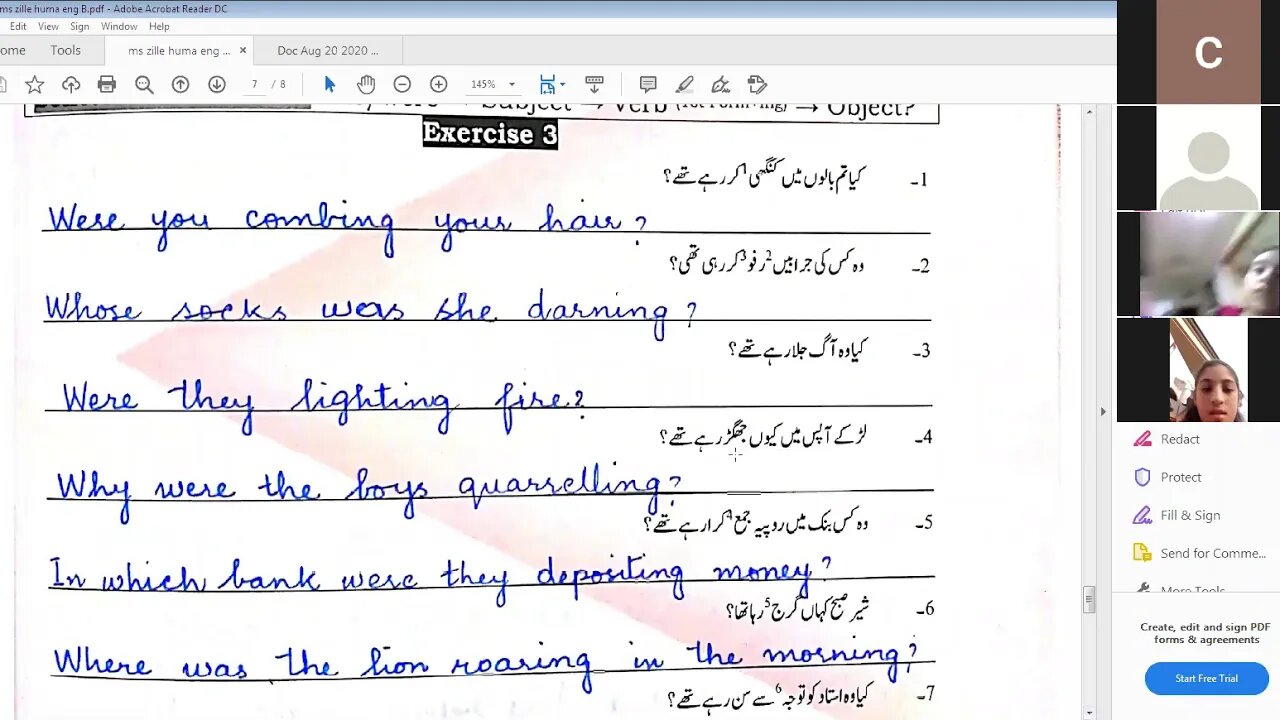 ms zille huma eng B.pdf - Adobe Acrobat Reader DC
Edit View Sign Window Help
ome Tools ms zille huma eng ... × Doc Aug 20 2020 ...
7 / 8 145%
Subject → Verb (1st Form+ing) → Object?
Exercise 3
1۔ کیا تم بالوں میں کنگھی¹ کر رہے تھے؟
Were you combing your hair?
2۔ وہ کس کی جرابیں² رفو³ کر رہی تھی؟
Whose socks was she darning?
3۔ کیا وہ آگ جلا رہے تھے؟
Were they lighting fire?
4۔ لڑکے آپس میں کیوں جھگڑ رہے تھے؟
Why were the boys quarrelling?
5۔ وہ کس بنک میں روپیہ جمع⁴ کرا رہے تھے؟
In which bank were they depositing money?
6۔ شیر صبح کہاں گرج⁵ رہا تھا؟
Where was the lion roaring in the morning?
7۔ کیا وہ استاد کو توجہ⁶ سے سن رہے تھے؟
C
Redact
Protect
Fill & Sign
Send for Comme...
More Tools
Create, edit and sign PDF
forms & agreements
Start Free Trial